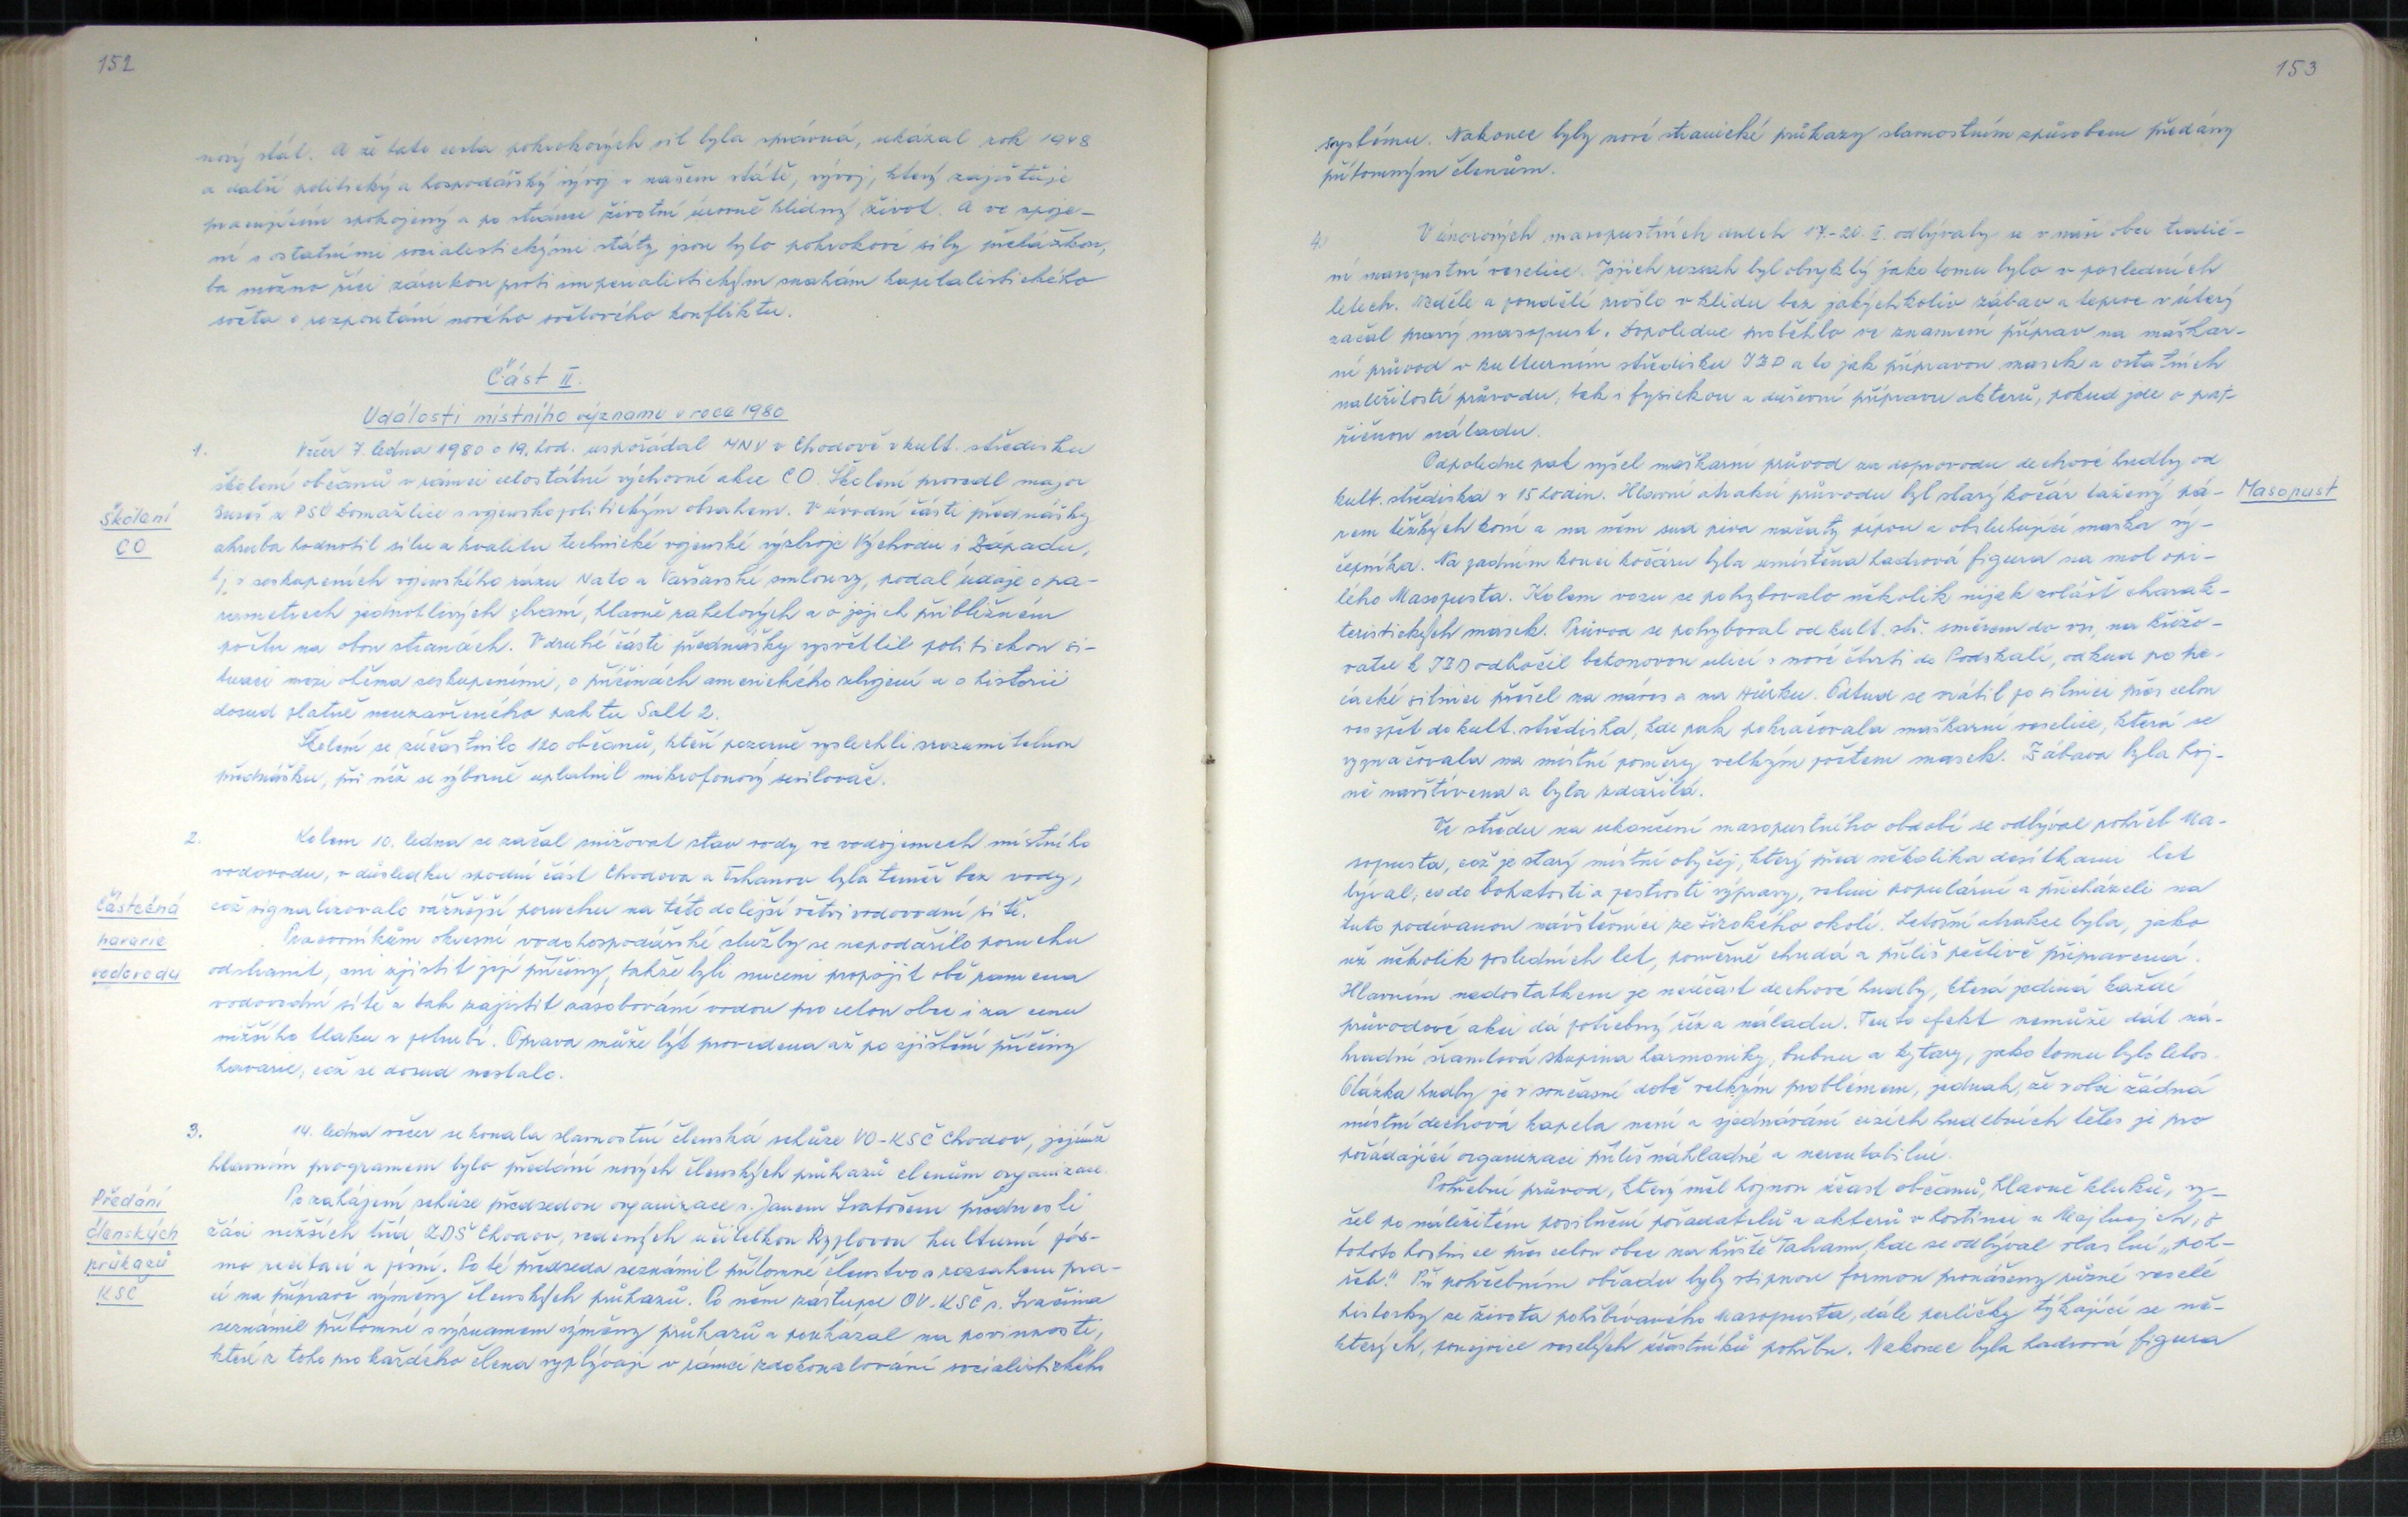 152
nový stát. A že tato cesta pokrokových sil byla správná, ukázal rok 1948
a další politický a hospodářský vývoj v našem státě, vývoj, který zajišťuje
pracujícím spokojený a po stránce životní úrovně klidný život. A ve spoje-
ní s ostatními socialistickými státy jsou tyto pokrokové síly překážkou,
ba možno říci zárukou proti imperialistickým snahám kapitalistického
světa o rozpoutání nového světového konfliktu.
Část II.
Události místního významu v roce 1980
1. Večer 7. ledna 1980 o 19. hod. uspořádal MNV v Chodově v kult. středisku
školení občanů v rámci celostátní výchovné akce CO. Školení provedl major
Školení
CO
z PSÚ Domažlice s vojenskopolitickým obsahem. V úvodní části přednášky
zhruba hodnotil sílu a kvalitu technické vojenské výzbroje Východu i Západu,
tj. v seskupeních vojenského rázu Nato a Varšavské smlouvy, podal údaje o pa-
rametrech jednotlivých zbraní, hlavně raketových a o jejich přibližném
počtu na obou stranách. V druhé části přednášky vysvětlil politickou si-
tuaci mezi oběma seskupeními, o příčinách amerického zbrojení a o historii
dosud platně neuzavřeného paktu Salt 2.
Školení se zúčastnilo 120 občanů, kteří pozorně vyslechli srozumitelnou
přednášku, při níž se výborně uplatnil mikrofonový zesilovač.
2. Kolem 10. ledna se začal snižovat stav vody ve vodojemech místního
vodovodu, v důsledku spodní část Chodova a Trhanov byla téměř bez vody,
Částečná
havarie
vodovodu
což signalizovalo vážnější poruchu na této dolejší větvi vodovodní sítě.
Pracovníkům okresní vodohospodářské služby se nepodařilo poruchu
odstranit, ani zjistit její příčiny, takže byli nuceni propojit obě ramena
vodovodní sítě a tak zajistit zásobování vodou pro celou obec i za cenu
nižšího tlaku v potrubí. Oprava může být provedena až po zjištění příčiny
havarie, což se dosud nestalo.
3. 14. ledna večer se konala slavnostní členská schůze VO-KSČ Chodov, jejímž
hlavním programem bylo předání nových členských průkazů členům organizace.
Předání
členských
průkazů
KSČ
Po zahájení schůze předsedou organizace s. Janem Svatošem přednesli
žáci nižších tříd ZDŠ Chodov, vedených učitelkou Ryplovou kulturní pás-
mo recitací a písní. Poté předseda seznámil přítomné členstvo s rozsahem pra-
cí na přípravě výměny členských průkazů. Po něm zástupce OV-KSČ s. Svačina
seznámil přítomné s významem výměny průkazů a poukázal na povinnosti,
které z toho pro každého člena vyplývají v rámci zdokonalování socialistického
153
systému. Nakonec byly nové stranické průkazy slavnostním způsobem předány
přítomným členům.
4. V únorových masopustních dnech 17.-20. II. odbývaly se v naší obci tradič-
ní masopustní veselice. Jejich rozsah byl obvyklý jako tomu bylo v posledních
letech. Neděle a pondělí prošlo v klidu bez jakýchkoliv zábav a teprve v úterý
začal pravý masopust. Dopoledne proběhlo ve znamení příprav na maškar-
ní průvod v kulturním středisku JZD a to jak přípravou masek a ostatních
náležitostí průvodu, tak i fysickou a duševní přípravu akterů, pokud jde o pat-
řičnou náladu.
Odpoledne pak vyšel maškarní průvod za doprovodu dechové hudby od
kult. střediska v 15 hodin. Hlavní atrakcí průvodu byl starý kočár tažený pá-
Masopust
rem těžkých koní a na něm sud piva načatý pípou a obsluhující maska vý-
čepníka. Na zadním konci kočáru byla umístěna hadrová figura na mol opi-
lého Masopusta. Kolem vozu se pohybovalo několik nijak zvlášť charak-
teristických masek. Průvod se pohyboval od kult. stř. směrem do vsi, na křižo-
vatce k JZD odbočil betonovou ulicí v nové čtvrti do Podskalí, odkud po pe-
cácké silnici přešel na náves a na Hůrku. Odtud se vrátil po silnici přes celou
ves zpět do kult. střediska, kde pak pokračovala maškarní veselice, která se
vyznačovala na místní poměry velkým počtem masek. Zábava byla hoj-
ně navštívena a byla zdařilá.
Ve středu na ukončení masopustního období se odbýval pohřeb Ma-
sopusta, což je starý místní obyčej, který před několika desítkami let
býval, co do bohatosti a pestrosti výpravy, velmi populární a přicházeli na
tuto podívanou návštěvníci ze širokého okolí. Letošní atrakce byla, jako
už několik posledních let, poměrně chudá a příliš pečlivě připravená.
Hlavním nedostatkem je neúčast dechové hudby, která jediná každé
průvodové akci dá potřebný říz a náladu. Tento efekt nemůže dát ná-
hradní šramlová skupina harmoniky, bubnu a kytary, jako tomu bylo letos.
Otázka hudby je v současné době velkým problémem, jednak, že v obci žádná
místní dechová kapela není a sjednávání cizích hudebních těles je pro
pořádající organizaci příliš nákladné a nerentabilní.
Pohřební průvod, který měl hojnou účast občanů, hlavně kluků, vy-
šel po náležitém posilnění pořadatelů a akterů v hostinci u Majlnejch, z
tohoto hostince přes celou obec na hřiště Tahann, kde se odbýval vlastní „poh-
řeb." Při pohřebním obřadu byly vtipnou formou pronášeny různé veselé
historky ze života pohřbívaného masopusta, dále perličky týkající se ně-
kterých, ponejvíce veselých účastníků pohřbu. Nakonec byla hadrová figura